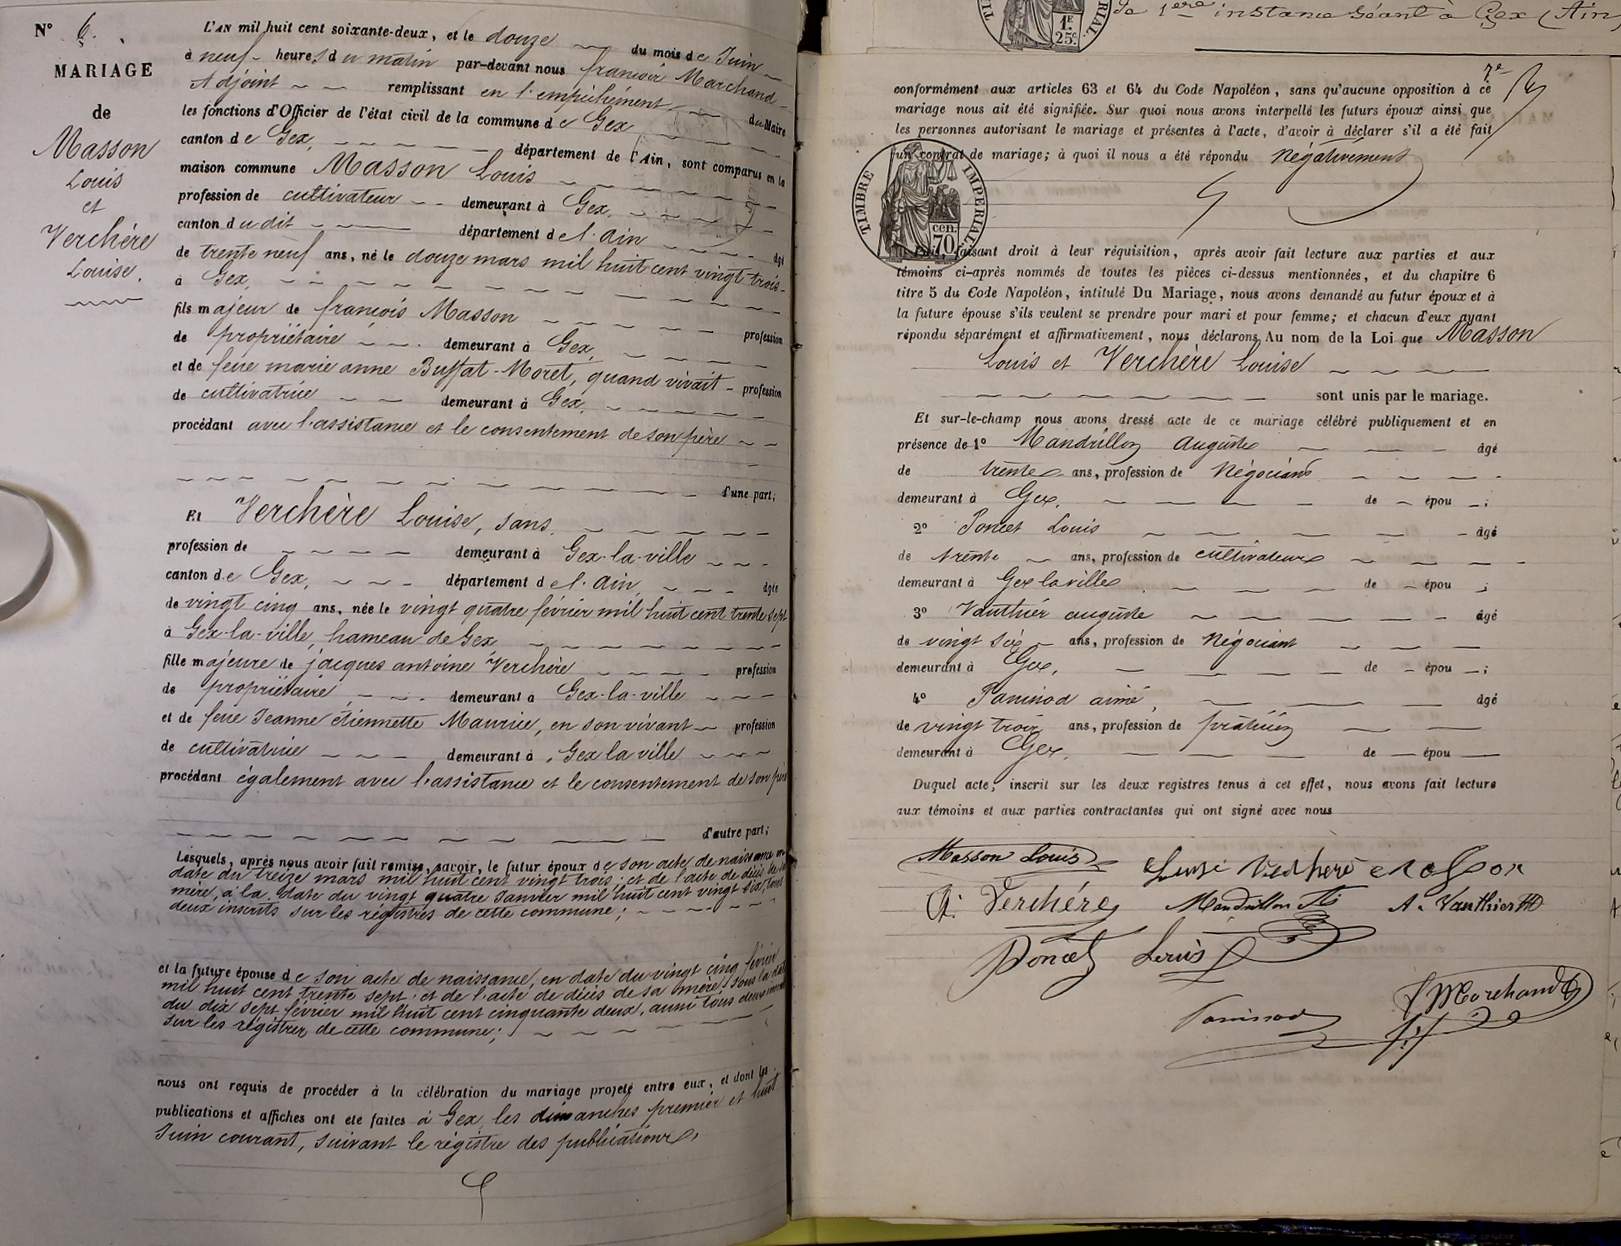 N° 6.
MARIAGE
de
Masson
Louis
et
Verchère
Louise.
L'AN mil huit cent soixante-deux, et le douze du mois de Juin
à neuf heures du matin par-devant nous françois Marchand
Adjoint remplissant en l'empêchement du Maire
les fonctions d'Officier de l'état civil de la commune de Gex
canton de Gex, département de l'Ain, sont comparus en la
maison commune Masson Louis
profession de cultivateur demeurant à Gex,
canton dudit département de l'Ain âgé
de trente neuf ans, né le douze mars mil huit cent vingt trois
à Gex,
fils majeur de françois Masson profession
de propriétaire demeurant à Gex,
et de feue marie anne Buffat-Moret, quand vivait profession
de cultivatrice demeurant à Gex,
procédant avec l'assistance et le consentement de son père
d'une part;
Et Verchère Louise, sans
profession de demeurant à Gex-la-ville
canton de Gex, département de l'Ain, âgée
de vingt cinq ans, née le vingt quatre février mil huit cent trente sept
à Gex-la-ville, hameau de Gex
fille majeure de jacques antoine Verchère profession
de propriétaire demeurant à Gex-la-ville
et de feue Jeanne étiennette Maurice, en son vivant profession
de cultivatrice demeurant à Gex la ville
procédant également avec l'assistance et le consentement de son père
d'autre part;
Lesquels, après nous avoir fait remise, savoir, le futur époux de son acte de naissance en
date du treize mars mil huit cent vingt trois, et de l'acte de décès de sa
mère, à la date du vingt quatre Janvier mil huit cent vingt six, tous
deux inscrits sur les régistres de cette commune;
et la future épouse de son acte de naissance, en date du vingt cinq février
mil huit cent trente sept, et de l'acte de décès de sa mère, sous la date
du dix sept février mil huit cent cinquante deux, aussi tous deux inscrits
sur les régistres de cette commune;
nous ont requis de procéder à la célébration du mariage projeté entre eux, et dont les
publications et affiches ont été faites à Gex, les dimanches premier et huit
Juin courant, suivant le régistre des publications,
de 1ere instance séant à Gex (Ain)
1F 25c
7e
conformément aux articles 63 et 64 du Code Napoléon, sans qu'aucune opposition à ce
mariage nous ait été signifiée. Sur quoi nous avons interpellé les futurs époux ainsi que
les personnes autorisant le mariage et présentes à l'acte, d'avoir à déclarer s'il a été fait
un contrat de mariage; à quoi il nous a été répondu Négativement
TIMBRE IMPÉRIAL
70 cen.
Et faisant droit à leur réquisition, après avoir fait lecture aux parties et aux
témoins ci-après nommés de toutes les pièces ci-dessus mentionnées, et du chapitre 6
titre 5 du Code Napoléon, intitulé Du Mariage, nous avons demandé au futur époux et à
la future épouse s'ils veulent se prendre pour mari et pour femme; et chacun d'eux ayant
répondu séparément et affirmativement, nous déclarons Au nom de la Loi que Masson
Louis et Verchère Louise
sont unis par le mariage.
Et sur-le-champ nous avons dressé acte de ce mariage célébré publiquement et en
présence de 1° Mandrillon Auguste âgé
de trente ans, profession de Négociant
demeurant à Gex, de épou ;
2° Poncet Louis âgé
de trente ans, profession de cultivateur
demeurant à Gex la ville de épou ;
3° Vauthier auguste âgé
de vingt six ans, profession de Négociant
demeurant à Gex, de épou ;
4° Paninod aimé, âgé
de vingt trois ans, profession de praticien
demeurant à Gex, de épou
Duquel acte, inscrit sur les deux registres tenus à cet effet, nous avons fait lecture
aux témoins et aux parties contractantes qui ont signé avec nous
Masson Louis
Verchère
Mandrillon
A. Vauthier
Poncet Louis
Paninod
f Marchand